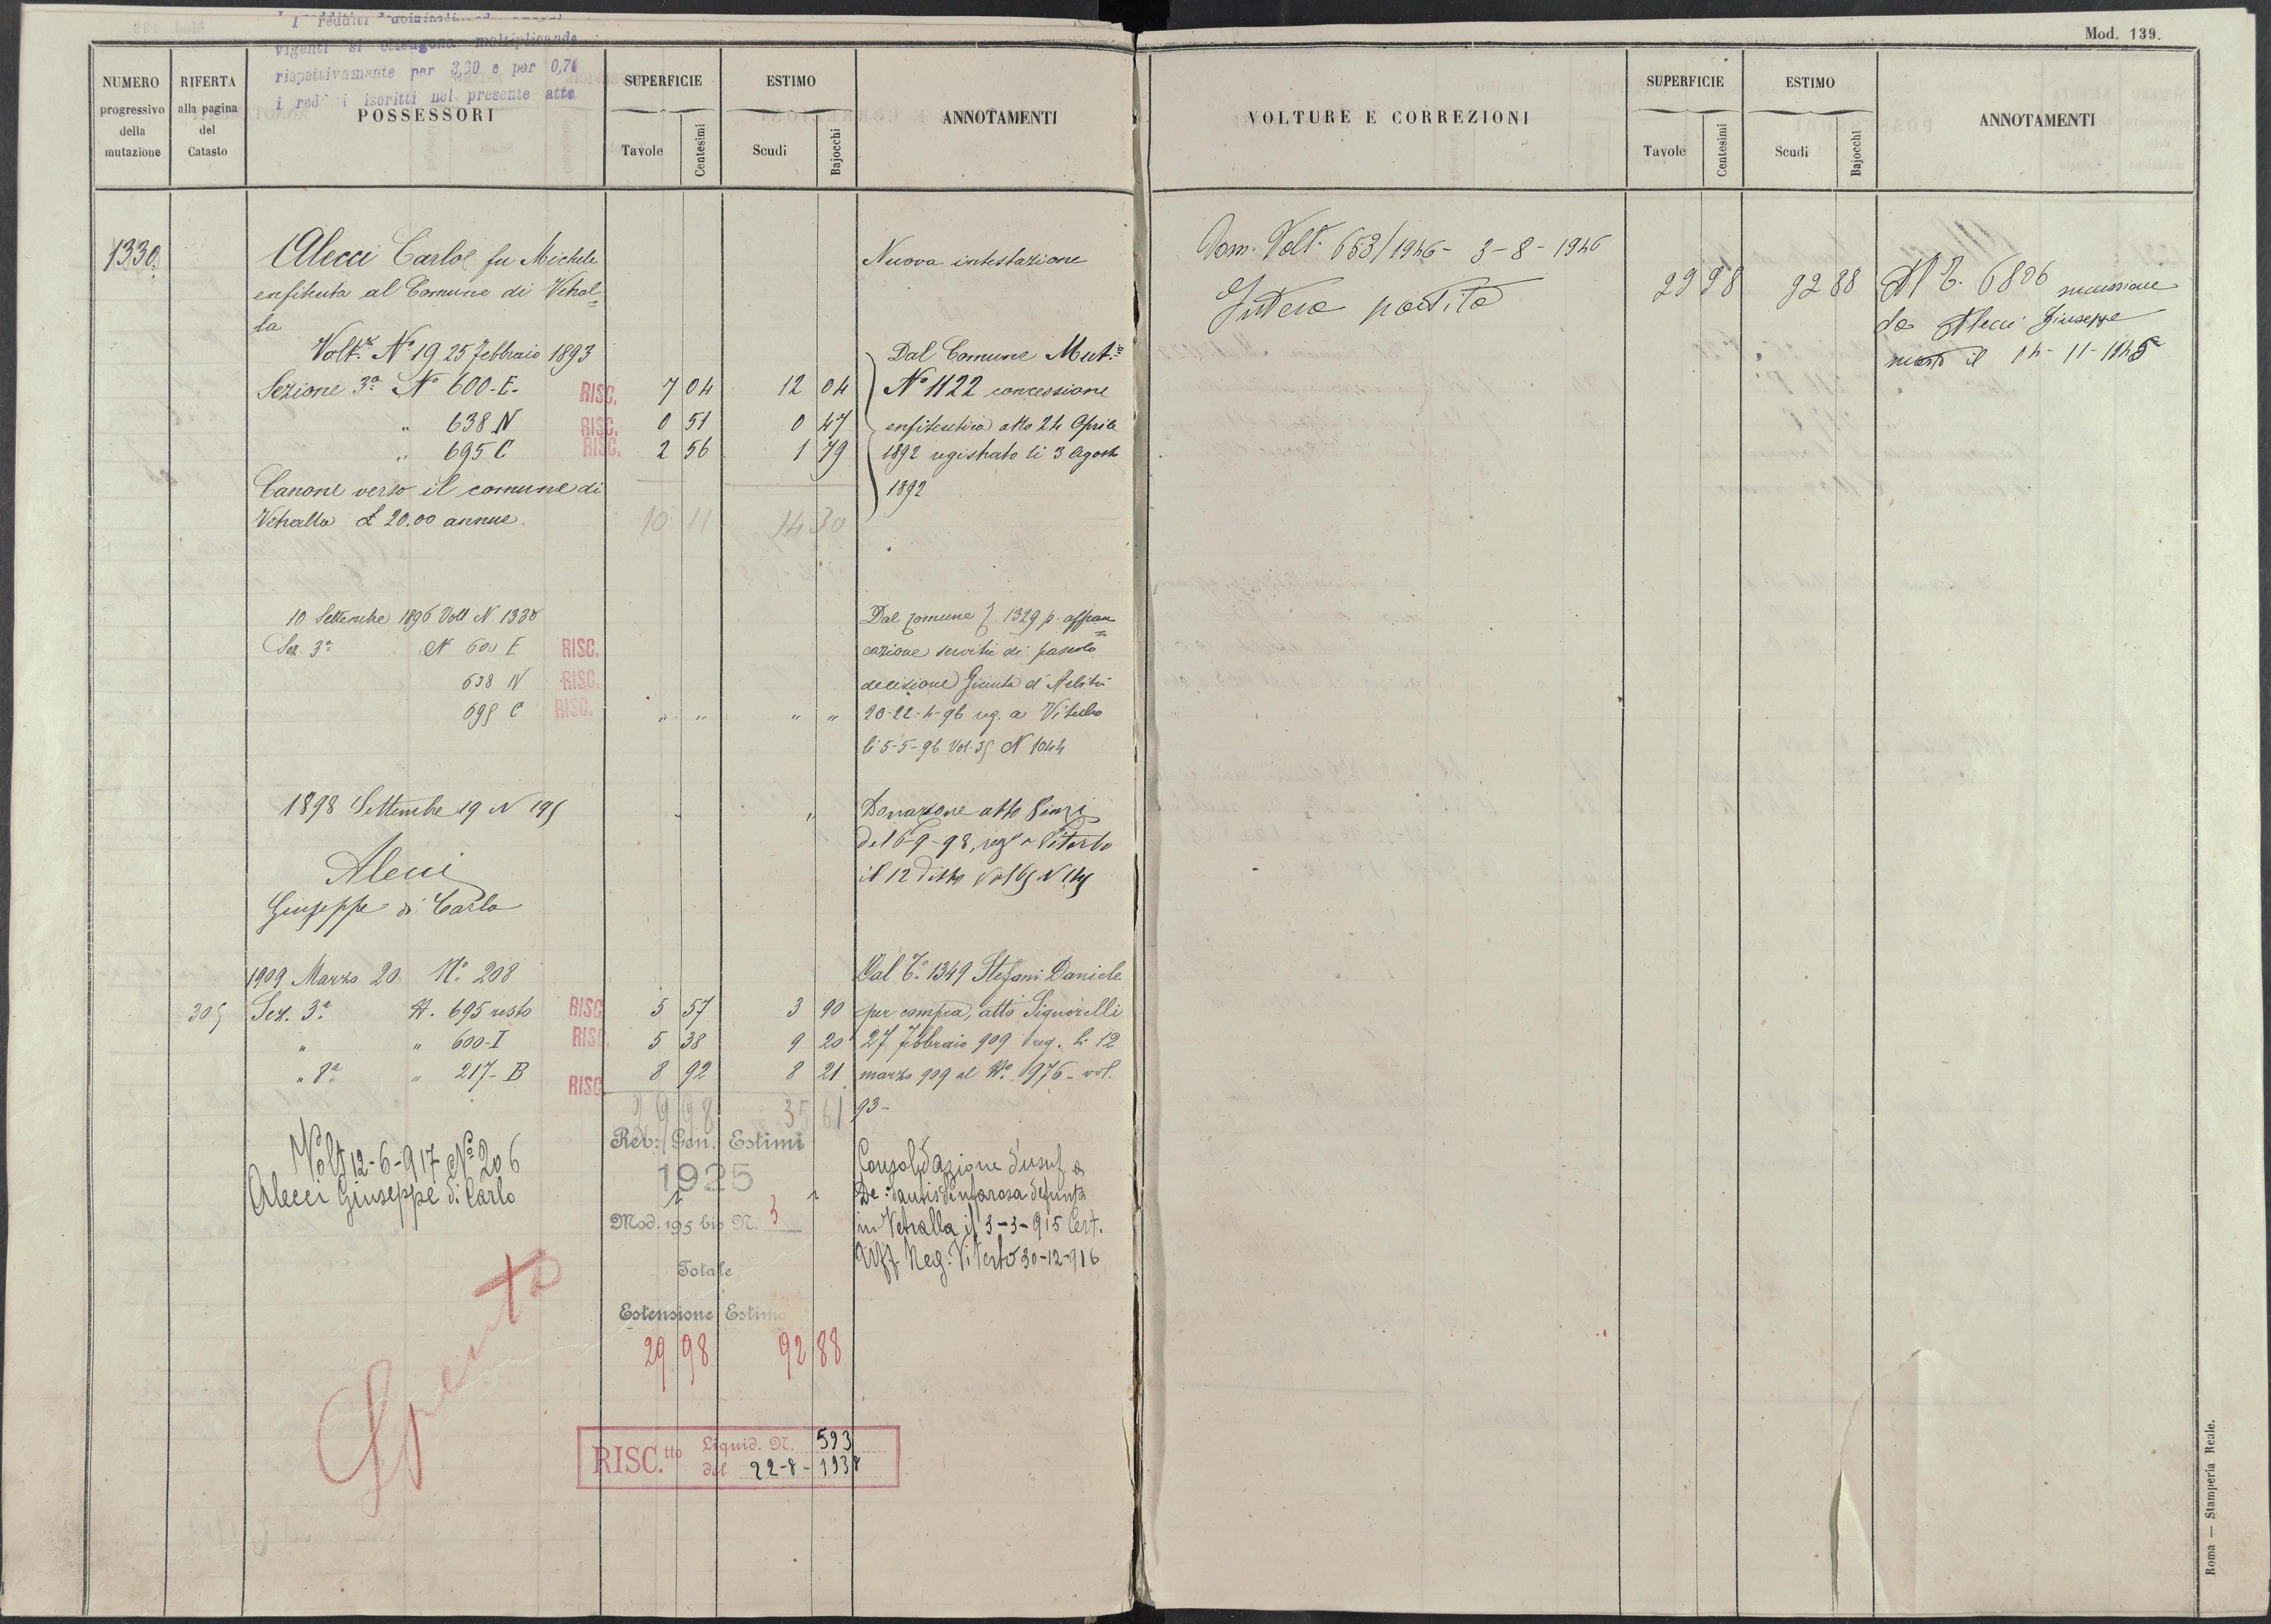 I redditi dominicali ed agrari
vigenti si ottengono moltiplicando
rispettivamente per 3,30 e per 0,70
i redditi iscritti nel presente atto
Mod. 139.
NUMERO progressivo della mutazione
RIFERTA alla pagina del Catasto
POSSESSORI
SUPERFICIE
Tavole
Centesimi
ESTIMO
Scudi
Bajocchi
ANNOTAMENTI
VOLTURE E CORREZIONI
SUPERFICIE
Tavole
Centesimi
ESTIMO
Scudi
Bajocchi
ANNOTAMENTI
1330
Alecci Carlo fu Michele
enfiteuta al Comune di Vetral=
la
Nuova intestazione
Volt.ª Nº 19 25 febbraio 1893
Sezione 3ª Nº 600-E- RISC. 7 04 12 04
" 638 N RISC. 0 51 0 47
" 695 C RISC. 2 56 1 79
Canone verso il comune di
Vetralla £ 20.00 annue.
10 11 14 30
Dal Comune Mut.ne
Nº 1122 concessione
enfiteutica atto 24 Aprile
1892 registrato li 3 Agosto
1892
10 Settembre 1896 Volt N. 1338
Sez. 3ª N 600 E RISC.
638 N RISC.
695 C RISC. " " " "
Dal comune 1329 p. affran=
cazione servitù di pascolo
decisione Giunta d'Arbitri
20-22-4-96 reg. a Viterbo
li 5-5-96 Vol. 35 N 1044
1898 Settembre 19 N 195 " "
Alecci
Giuseppe di Carlo
Donazione atto
del 6-9-98, reg a Viterbo
il 12 detto
1909 Marzo 20 Nº 208
305 Sez. 3ª N. 695 resto RISC 5 57 3 90
" " 600-I RISC. 5 38 9 20
" 8ª " 217-B RISC 8 92 8 21
29 98 35 61
Dal T. 1349 Stefani Daniele
per compra, atto Signorelli
27 febbraio 909 reg. li 12
marzo 909 al Nº 976 - vol.
93-
Volt 12-6-917 Nº 206
Alecci Giuseppe di Carlo
Consolidazione d'usuf a
De
in Vetralla il 3-3-915 Cert.
Uff Reg. Viterbo 30-12-916
Rev: Gen. Estimi
1925
Mod. 195 bis N. 3
Totale
Estensione Estimo
29 98 92 88
Spento
RISC.tto Liquid. N. 593
del 22-8-1938
Dom. Volt. 653/1946 - 3-8-1946
Intera partita
29 98 92 88
Al T. 6806 successione
da Alecci Giuseppe
morto il 14-11-1945
Roma — Stamperia Reale.